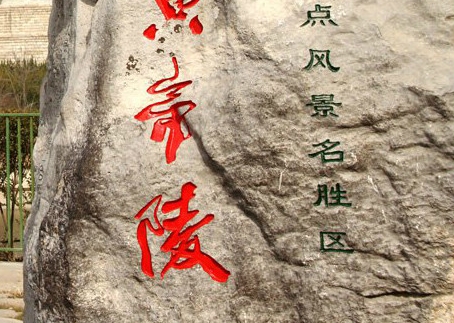 点风景名胜区
黄帝陵